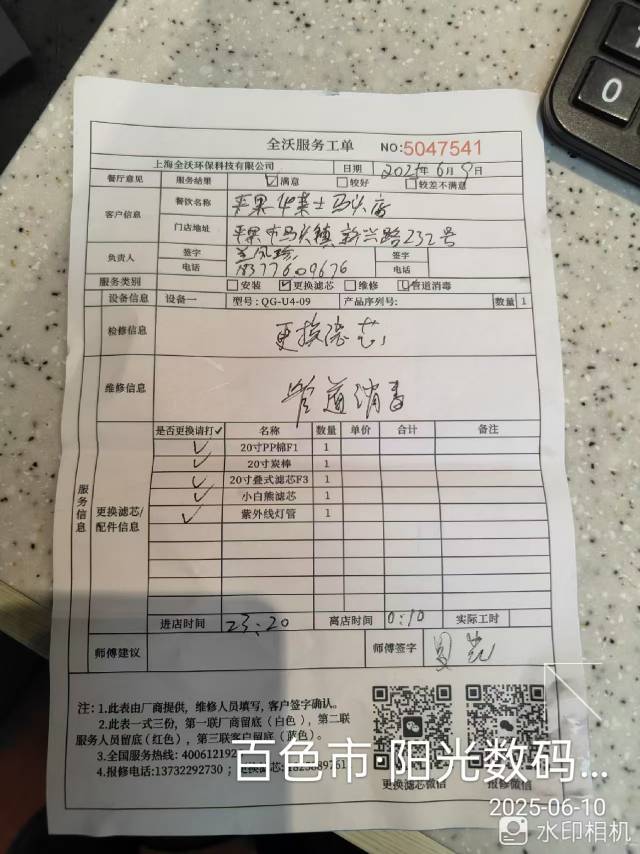 全沃服务工单 NO:5047541
上海全沃环保科技有限公司 日期 2025年6月9日
餐厅意见 服务结果 满意 较好 较差不满意
客户信息 餐饮名称 平果华莱士马头店
门店地址 平果市马头镇新兴路232号
负责人 签字 签字
电话 18377609676 电话
服务类别 安装 更换滤芯 维修 管道消毒
设备信息 设备一 型号:QG-U4-09 产品序列号: 数量 1
检修信息 更换滤芯
维修信息 管道消毒
服务信息
更换滤芯/配件信息
是否更换请打✓ 名称 数量 单价 合计 备注
✓ 20寸PP棉F1 1
✓ 20寸炭棒 1
✓ 20寸叠式滤芯F3 1
✓ 小白熊滤芯 1
✓ 紫外线灯管 1
进店时间 23:20 离店时间 0:10 实际工时
师傅建议 师傅签字
注:1.此表由厂商提供,维修人员填写,客户签字确认。
2.此表一式三份,第一联厂商留底(白色),第二联
服务人员留底(红色),第三联客户留底(蓝色)。
3.全国服务热线:400612192
4.报修电话:13732292730;更换滤芯:
更换滤芯微信 报修微信
百色市 阳光数码...
2025-06-10
水印相机
0